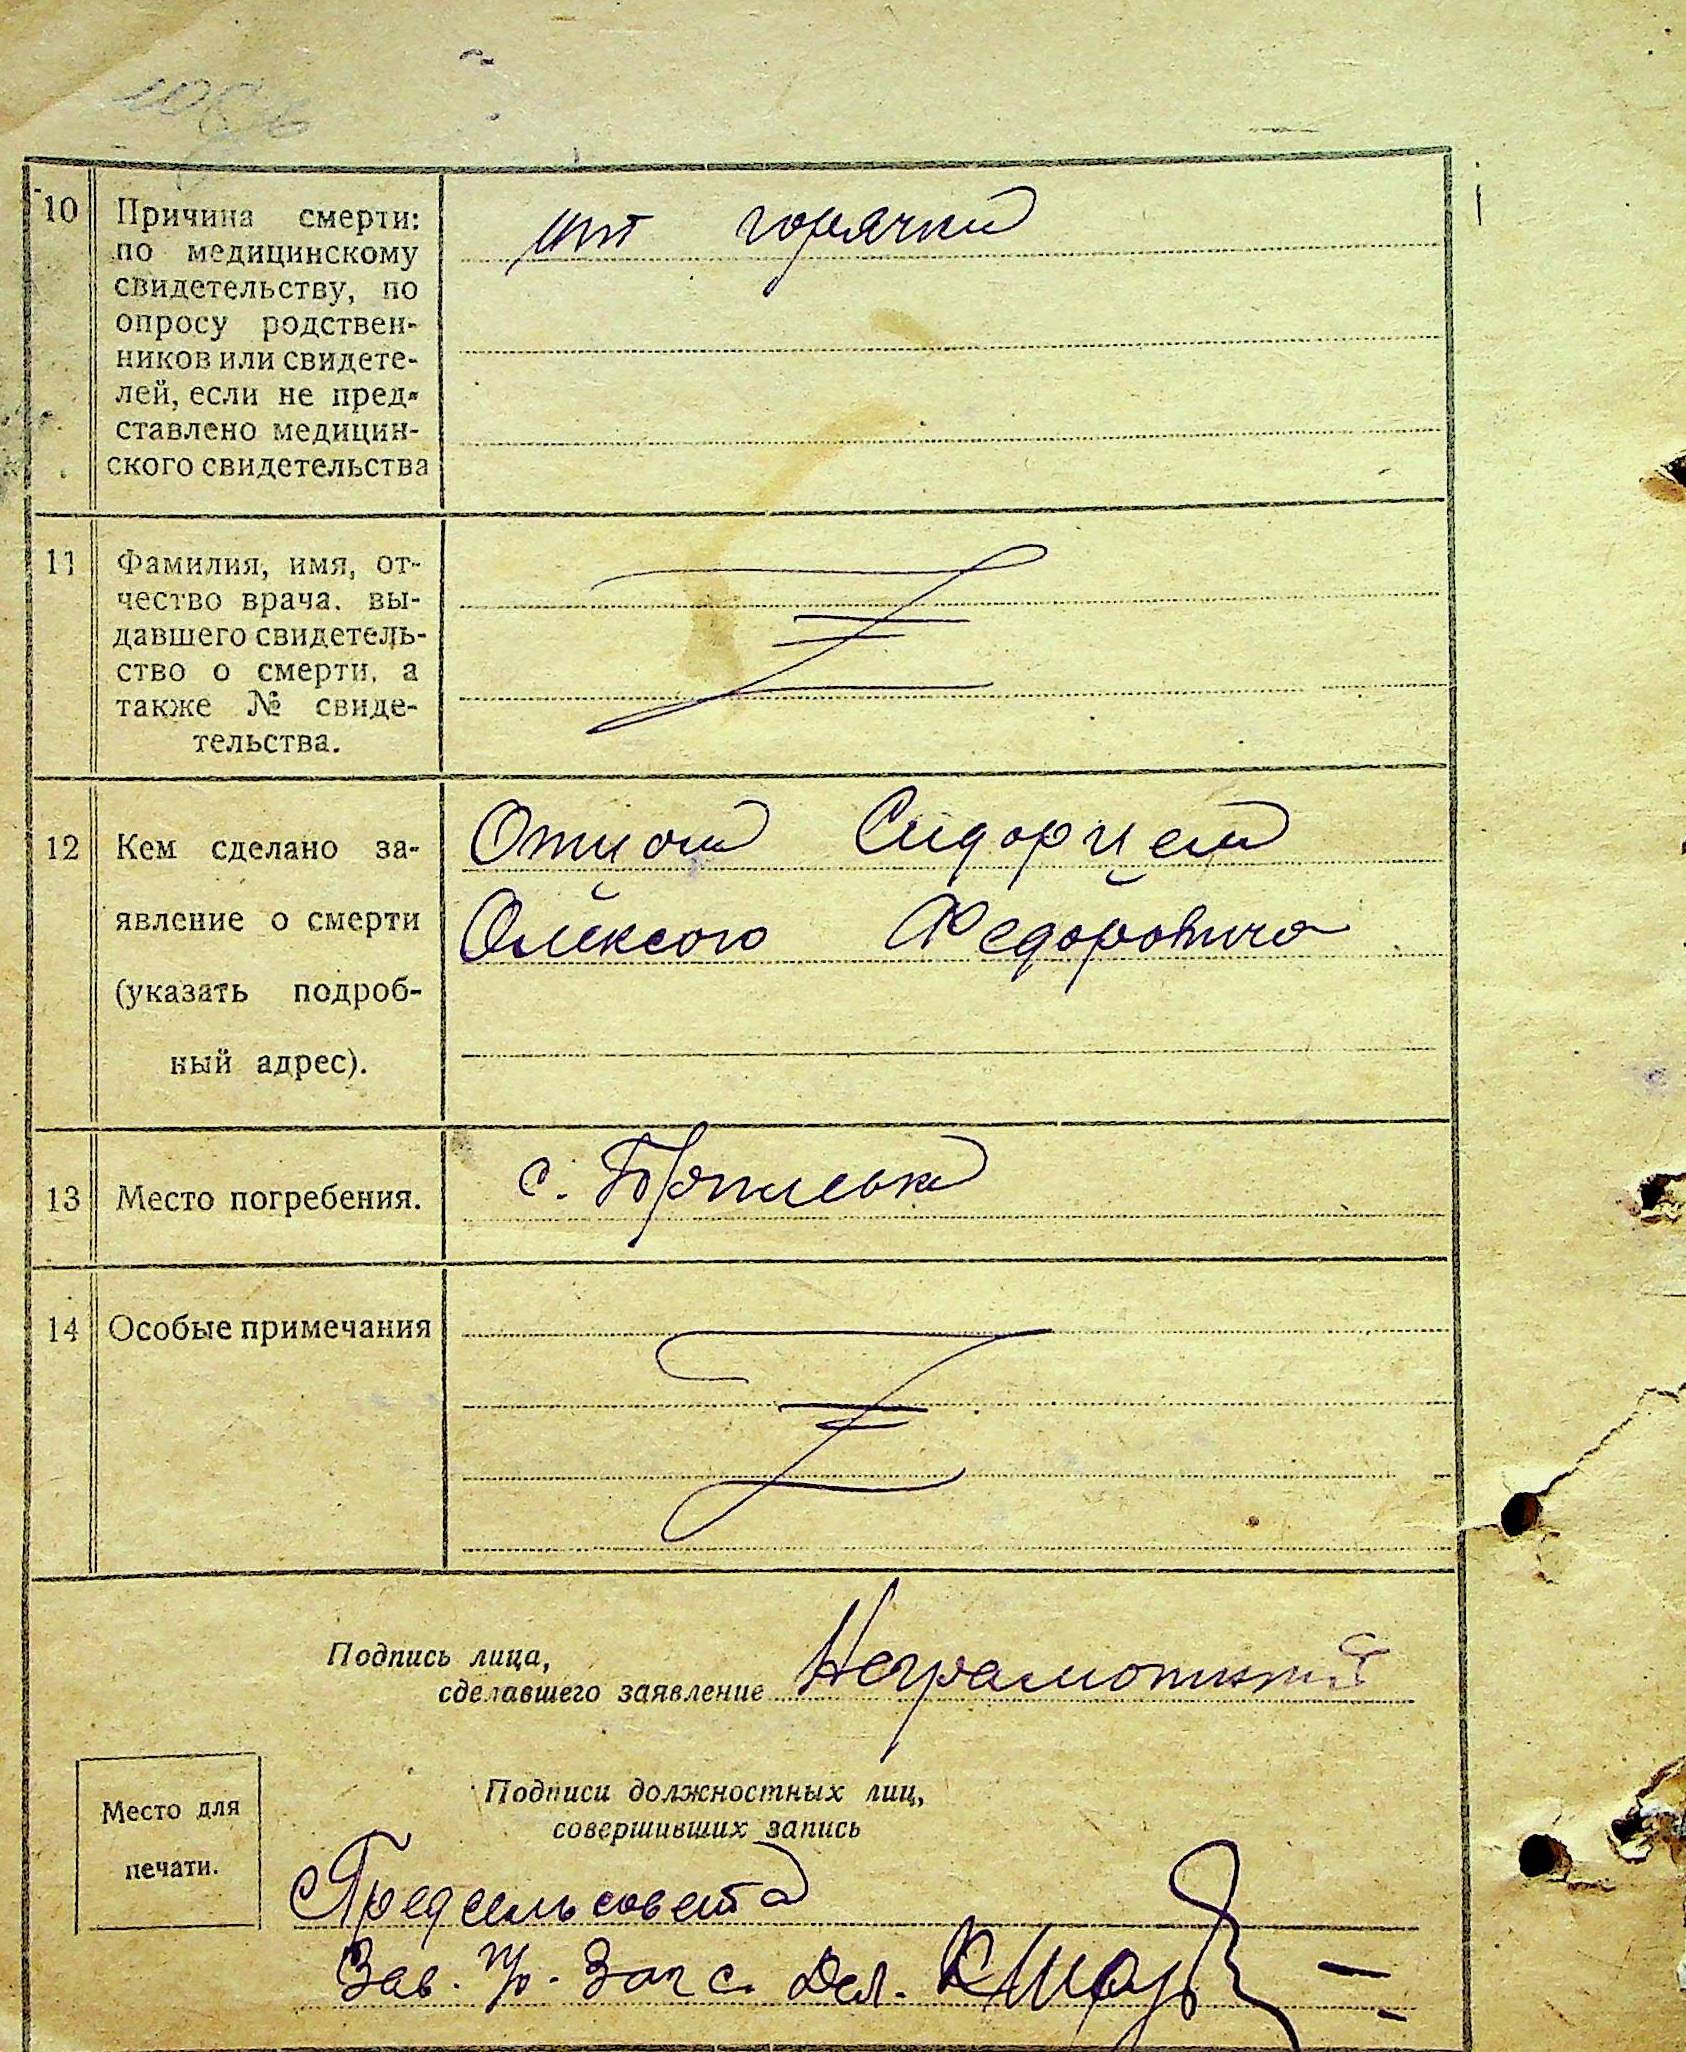 10 Причина смерти:
по медицинскому
свидетельству, по
опросу родствен-
ников или свидете-
лей, если не пред-
ставлено медицин-
ского свидетельства
горячки
11 Фамилия, имя, от-
чество врача. вы-
давшего свидетель-
ство о смерти, а
также № свиде-
тельства.
12 Кем сделано за-
явление о смерти
(указать подроб-
ный адрес).
Отцом Сидорцем
Олексою Федоровича
13 Место погребения.
с.
14 Особые примечания
Подпись лица,
сделавшего заявление Неграмотный
Место для
печати.
Подписи должностных лиц,
совершивших запись
Предсельсовета
Зав.